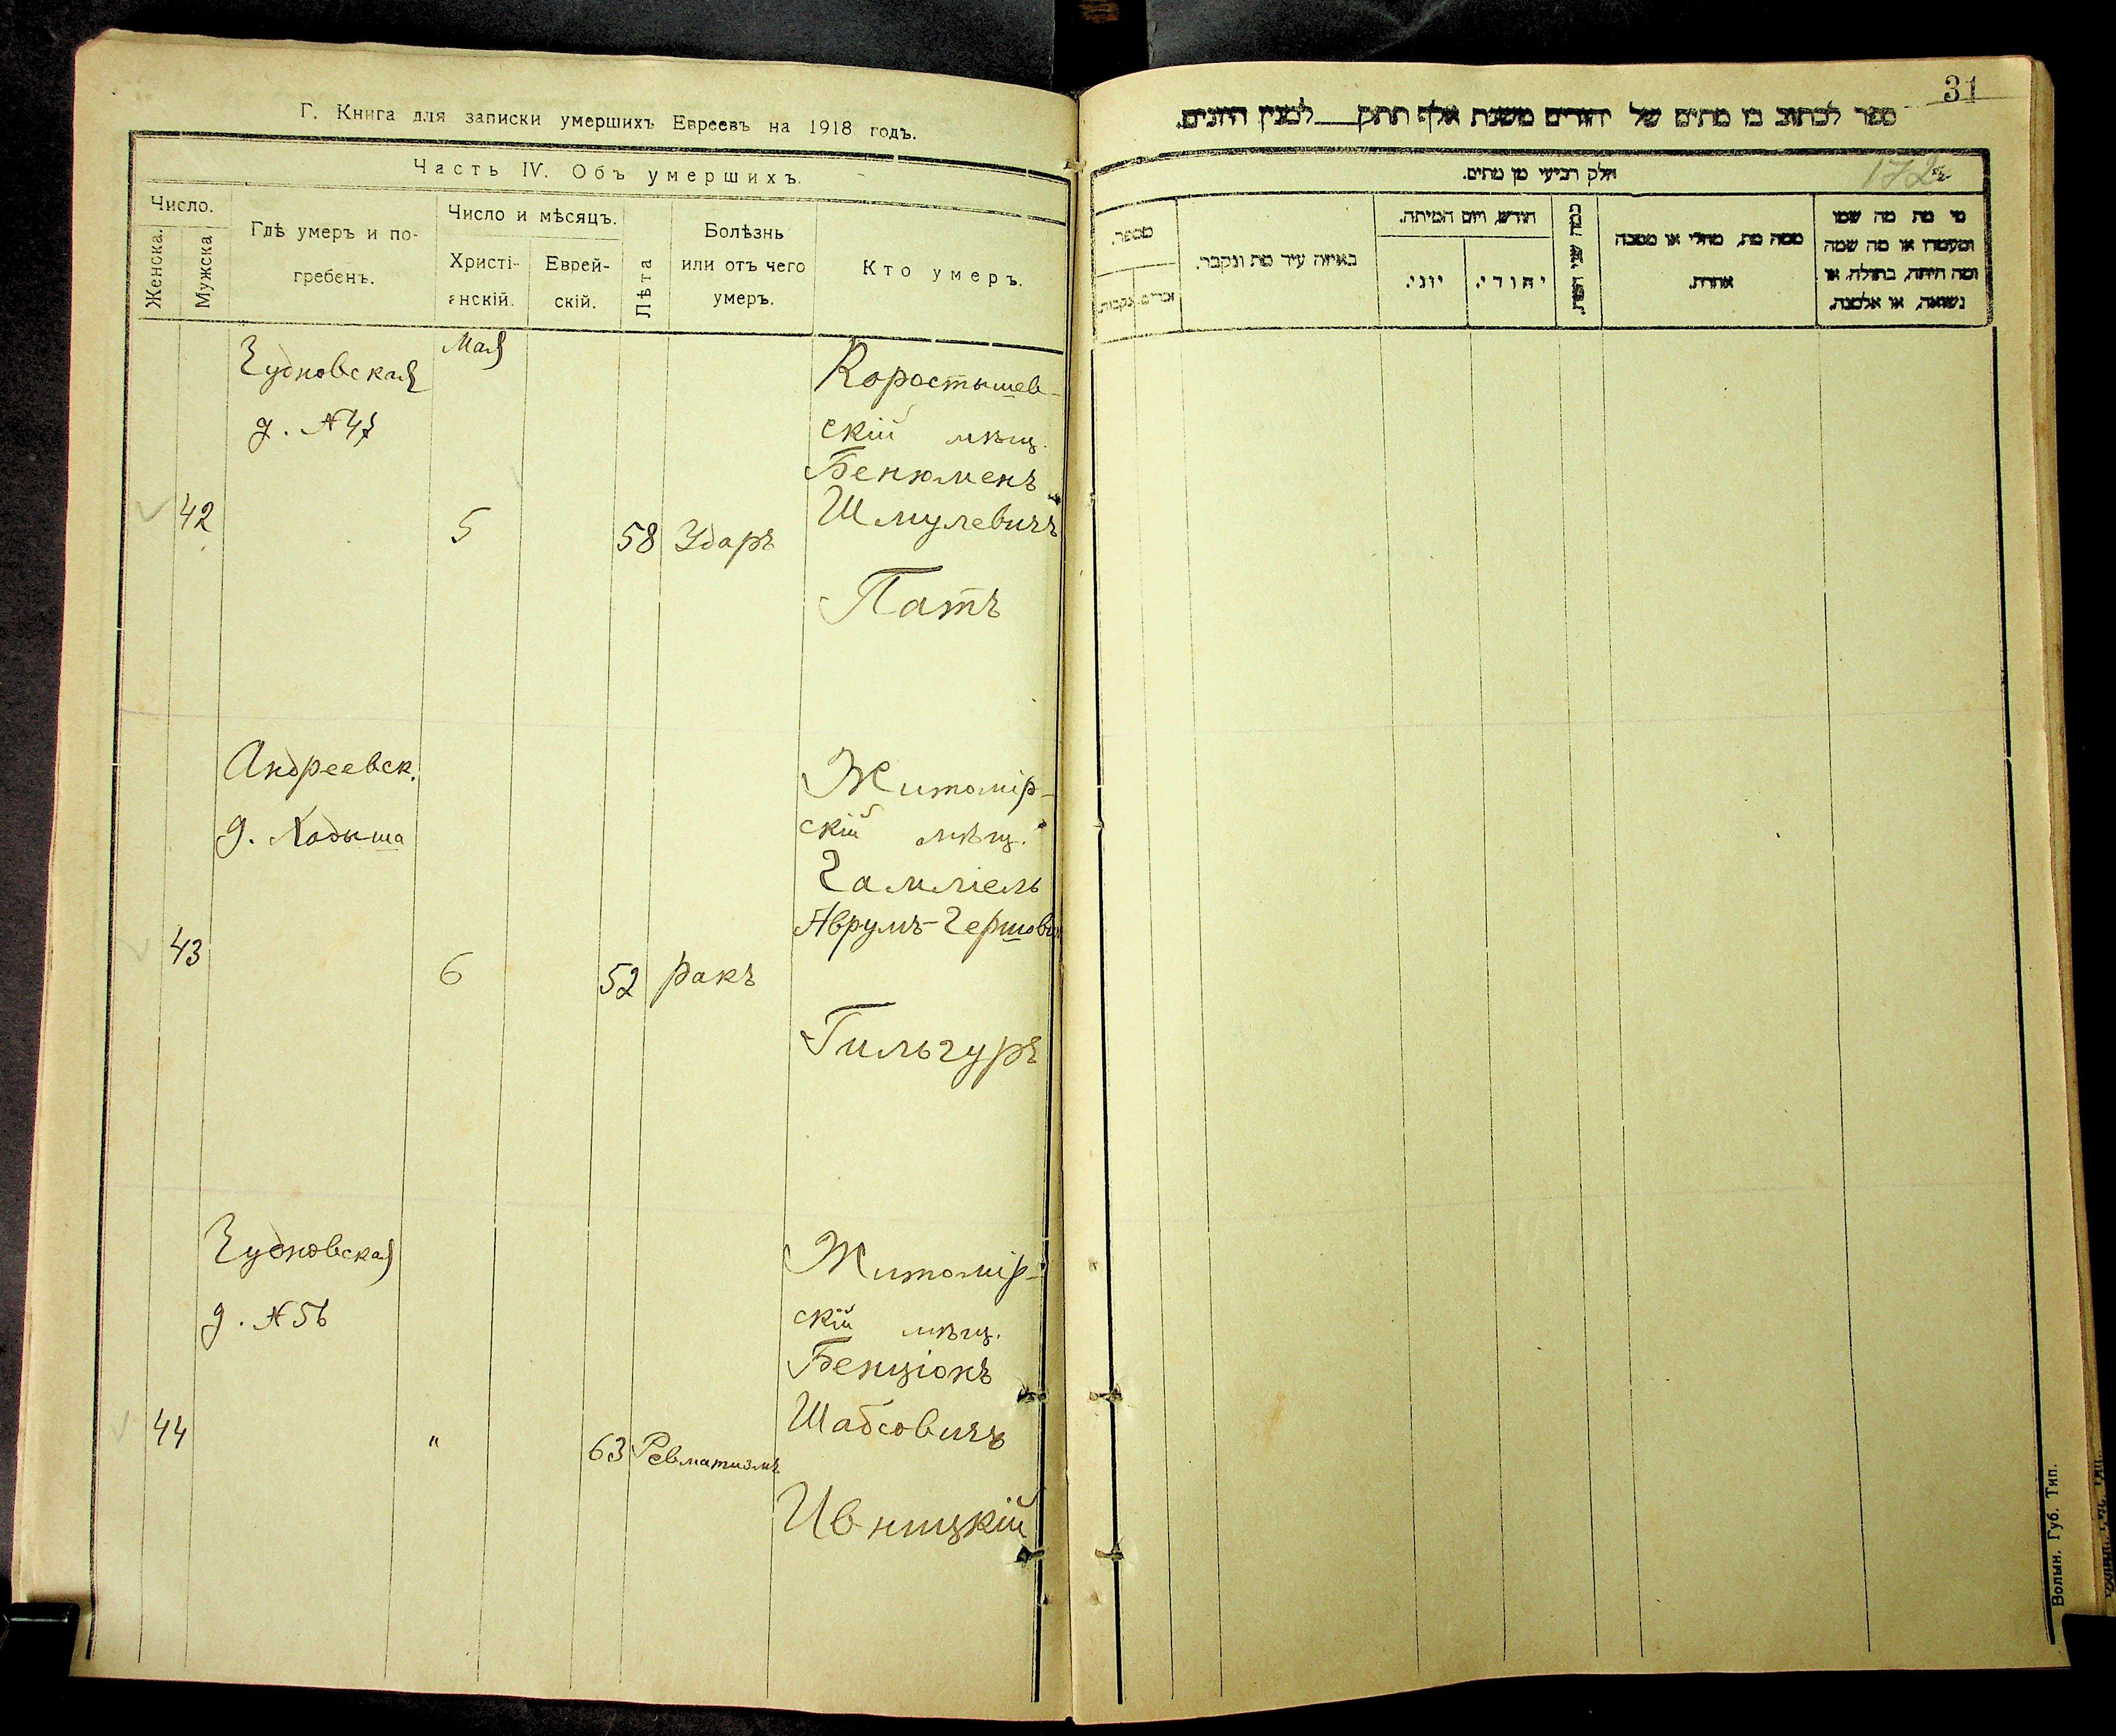 Г. Книга для записки умершихъ Евреевъ на 1918 годъ.
Часть IV. Объ умершихъ.
Число.
Женска.
Мужска
Гдѣ умеръ и по-
гребенъ.
Число и мѣсяцъ.
Христі-
анскій.
Еврей-
скій.
Лѣта
Болѣзнь
или отъ чего
умеръ.
Кто умеръ.
Чудновская
д. №47
Мая
42
5
58
Ударъ
Коростышев-
скій мѣщ.
Бенюменъ
Шмулевичъ
Патъ
Андреевск.
д. Ходыша
43
6
52
ракъ
Житомір-
скій мѣщ.
Гамліель
Аврумъ-Гершович
Гильгуръ
Чудновская
д. №56
44
"
63
Ревматизмъ
Житомір-
скій мѣщ.
Бенціонъ
Шабсовичъ
Ивницкій
31
ספר לכתוב בו מתים של יהודים משנת אלף תתק___למנין היונים.
172
חלק רביעי מן מתים.
מי מת מה שמו
ומעמדו או מה שמה
ומה היתה, בתולה, או
נשואה, או אלמנה.
ממה מת, מחלי או מסבה
אחרת.
כמה שני
חודש, ויום המיתה.
יהודי.
יוני.
באיזה עיר מת ונקבר.
מספר.
זכרים.
נקבות.
Волын. Губ. Тип.